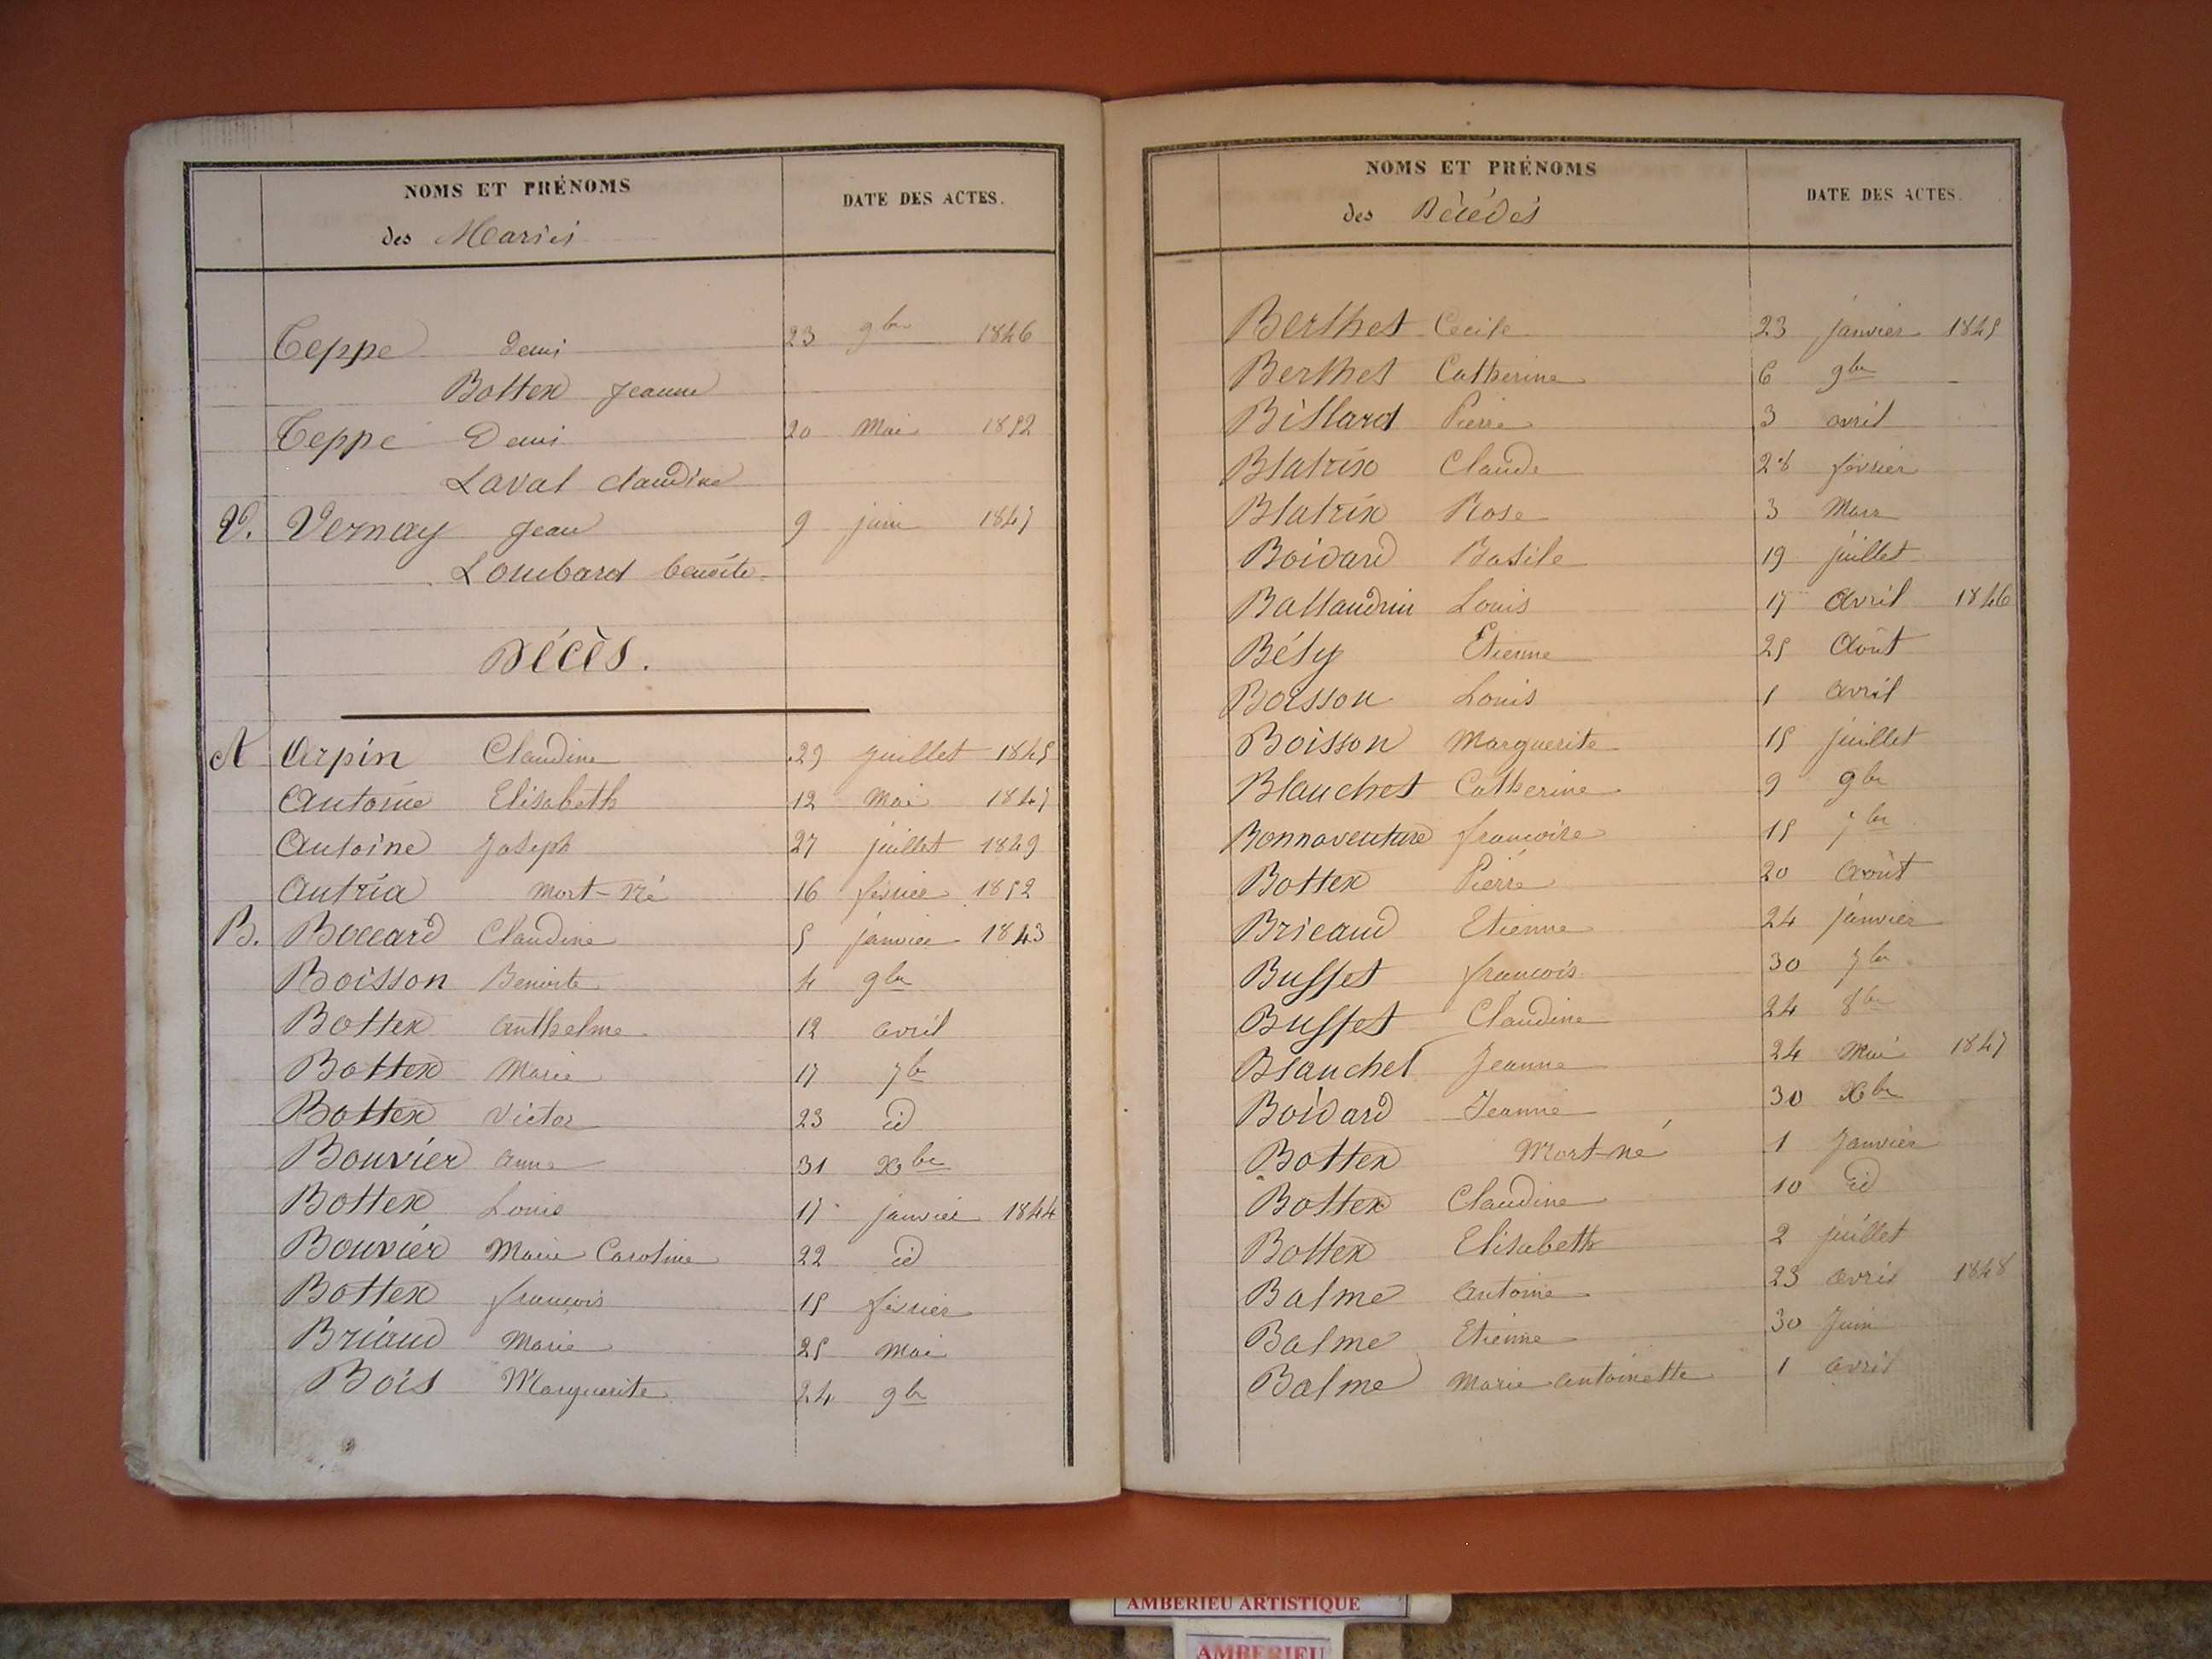 NOMS ET PRÉNOMS DATE DES ACTES.
des Mariés
Teppe Denis 23 9bre 1846
Bottex Jeanne
Teppe Denis 20 Mai 1852
Laval claudine
V. Vernay Jean 9 juin 1847
Lombard benoite
DÉCÈS.
A Arpin Claudine 29 juillet 1845
Antoine Elisabeth 12 Mai 1847
Antoine Joseph 27 juillet 1849
Autria Mort-né 16 février 1852
B. Boccard Claudine 5 janvier 1843
Boisson Benoite 4 9bre
Bottex Anthelme 12 avril
Bottex Marie 17 7b
Bottex Victor 23 id
Bouvier Anne 31 Xbre
Bottex Louis 17 janvier 1844
Bouvier Marie Caroline 22 id
Bottex françois 15 février
Briaud Marie 25 Mai
Bois Marguerite 24 9b
NOMS ET PRÉNOMS DATE DES ACTES.
des Décédés
Berthet Cecile 23 janvier 1845
Berthet Catherine 6 9bre
Billard Pierre 3 avril
Blatrix Claude 26 février
Blatrix Rose 3 Mars
Boidard Basile 19 juillet
Ballandrin Louis 17 Avril 1846
Bély Etienne 25 Août
Boisson Louis 1 avril
Boisson Marguerite 15 juillet
Blanchet Catherine 9 9bre
Bonnaventure françoise 15 7bre
Bottex Pierre 20 Août
Bricaud Etienne 24 janvier
Buffet françois 30 7bre
Buffet Claudine 24 8bre
Blanchet Jeanne 24 Mai 1847
Boidard Jeanne 30 Xbre
Bottex Mort-né 1 Janvier
Bottex Claudine 10 id
Bottex Elisabeth 2 juillet
Balme Antoine 23 avril 1848
Balme Etienne 30 Juin
Balme Marie Antoinette 1 avril
AMBERIEU ARTISTIQUE
AMBERIEU